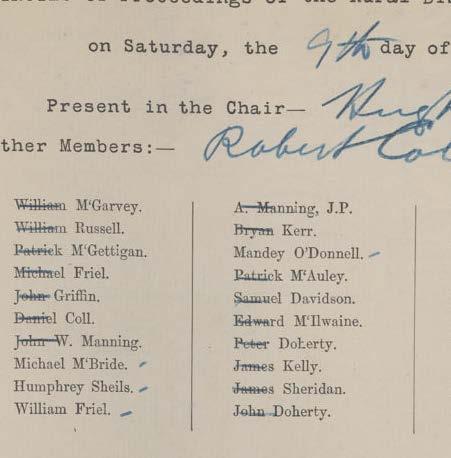 of Proceedings of the Rural
on Saturday, the 9th day of
Present in the Chair— Hugh
ther Members:— Robert Col
William M'Garvey.
William Russell.
Patrick M'Gettigan.
Michael Friel.
John Griffin.
Daniel Coll.
John W. Manning.
Michael M'Bride.
Humphrey Sheils.
William Friel.
A. Manning, J.P.
Bryan Kerr.
Mandey O'Donnell.
Patrick M'Auley.
Samuel Davidson.
Edward M'Ilwaine.
Peter Doherty.
James Kelly.
James Sheridan.
John Doherty.